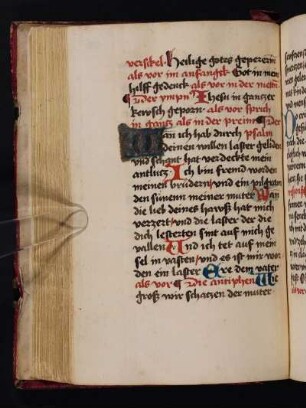 versikel Heilige gotes gepererin
als vor im anfangk Got in mein
hilff gedenck als vor in der mettin
Der ympn Ihesu in gantzer
kewsch geporn als vor sprich
in gantz als in der preim Der
Wan ich hab durch psalm
deinen willen laster geliden
und schant hat verdeckte mein
antlutz Ich bin fremd worden
meinen brudern und ein pilgram
den sunenn meiner muter Wan
die lieb deines hawss hat mich
verzert und die laster der die
dich lesterten sint auff mich ge
vallen Und ich tet auf mein
sel in vasten und es ist mir wor
den ein laster Ere dem vater
als vor Die antiphen Wie
gross wir schatzen der muter